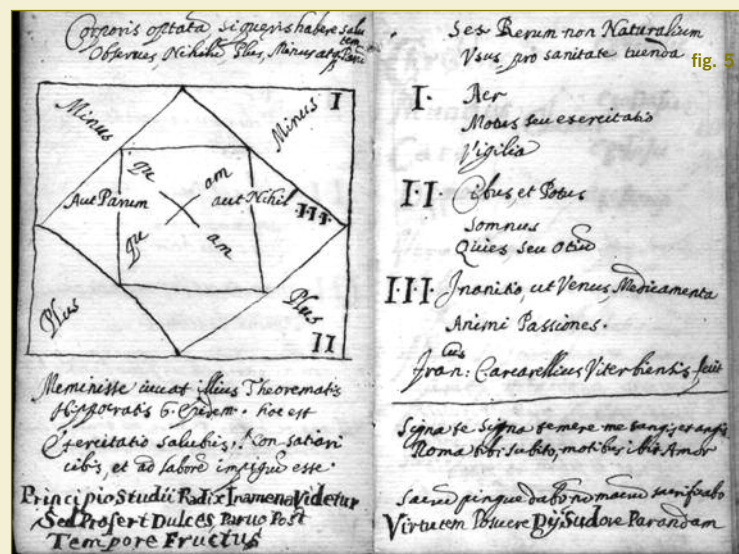 Corporis optatā si queris habere salu
tem
Observes Nihilū Plus, Minus atq;
Minus
I
Minus
qu am
Aut Parum
aut Nihil
III.
qu am
Plus
Plus
II
Meminisse iuvat illius Theorematis
Hippocratis 6. Epidem. hoc est
Exercitatio salubris, Non satiari
cibis, et ad laborē impigrū esse.
Principio Studii Radix Inamena Videtur
Sed Profert Dulces Paruo Post
Tempore Fructus
Sex Rerum non Naturalium
Usus pro sanitate tuenda
fig. 5
I. Aer
Motus seu exercitatio
Vigilia
II. Cibus et Potus
Somnus
Quies seu Otiū
III. Inanitio, ut Venus, Medicamenta
Animi Passiones.
Fran:cus Carcarellius Viterbiensis fecit
Signa te signa temere me tangis et angis
Roma tibi subito, motibus ibit Amor
Sacrū pingue dabo nō macrū sacrificabo
Virtutem Posuere Dij Sudore Parandam